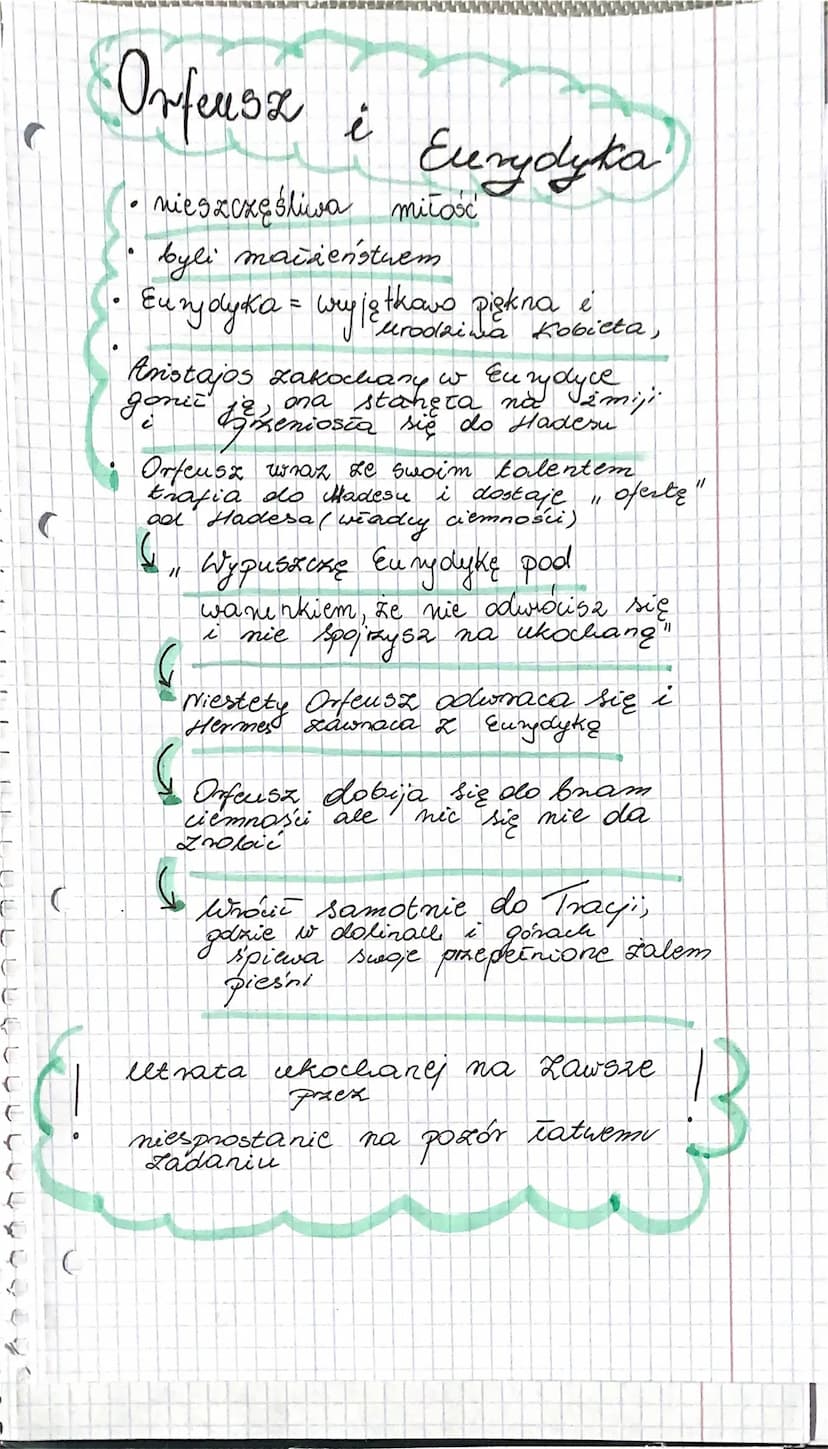 Orfeusz i Eurydyka
• nieszczęśliwa miłość
• byli małżeństwem
• Eurydyka = wyjątkowo piękna i
urodziwa kobieta,
•
Aristajos zakochany w Eurydyce
gonił ją, ona stanęła na żmiji
i przeniosła się do Hadesu
• Orfeusz wraz ze swoim talentem
trafia do Hadesu i dostaje „ofertę"
od Hadesa (władcy ciemności)
„Wypuszczę Eurydykę pod
warunkiem, że nie odwrócisz się
i nie spojrzysz na ukochaną"
Niestety Orfeusz odwraca się i
Hermes zawraca z Eurydyką
Orfeusz dobija się do bram
ciemności ale nic się nie da
zrobić
Wrócił samotnie do Tracji,
gdzie w dolinach i górach
śpiewa swoje przepełnione żalem
pieśni
! Utrata ukochanej na zawsze !
przez
niesprostanie na pozór łatwemu
zadaniu